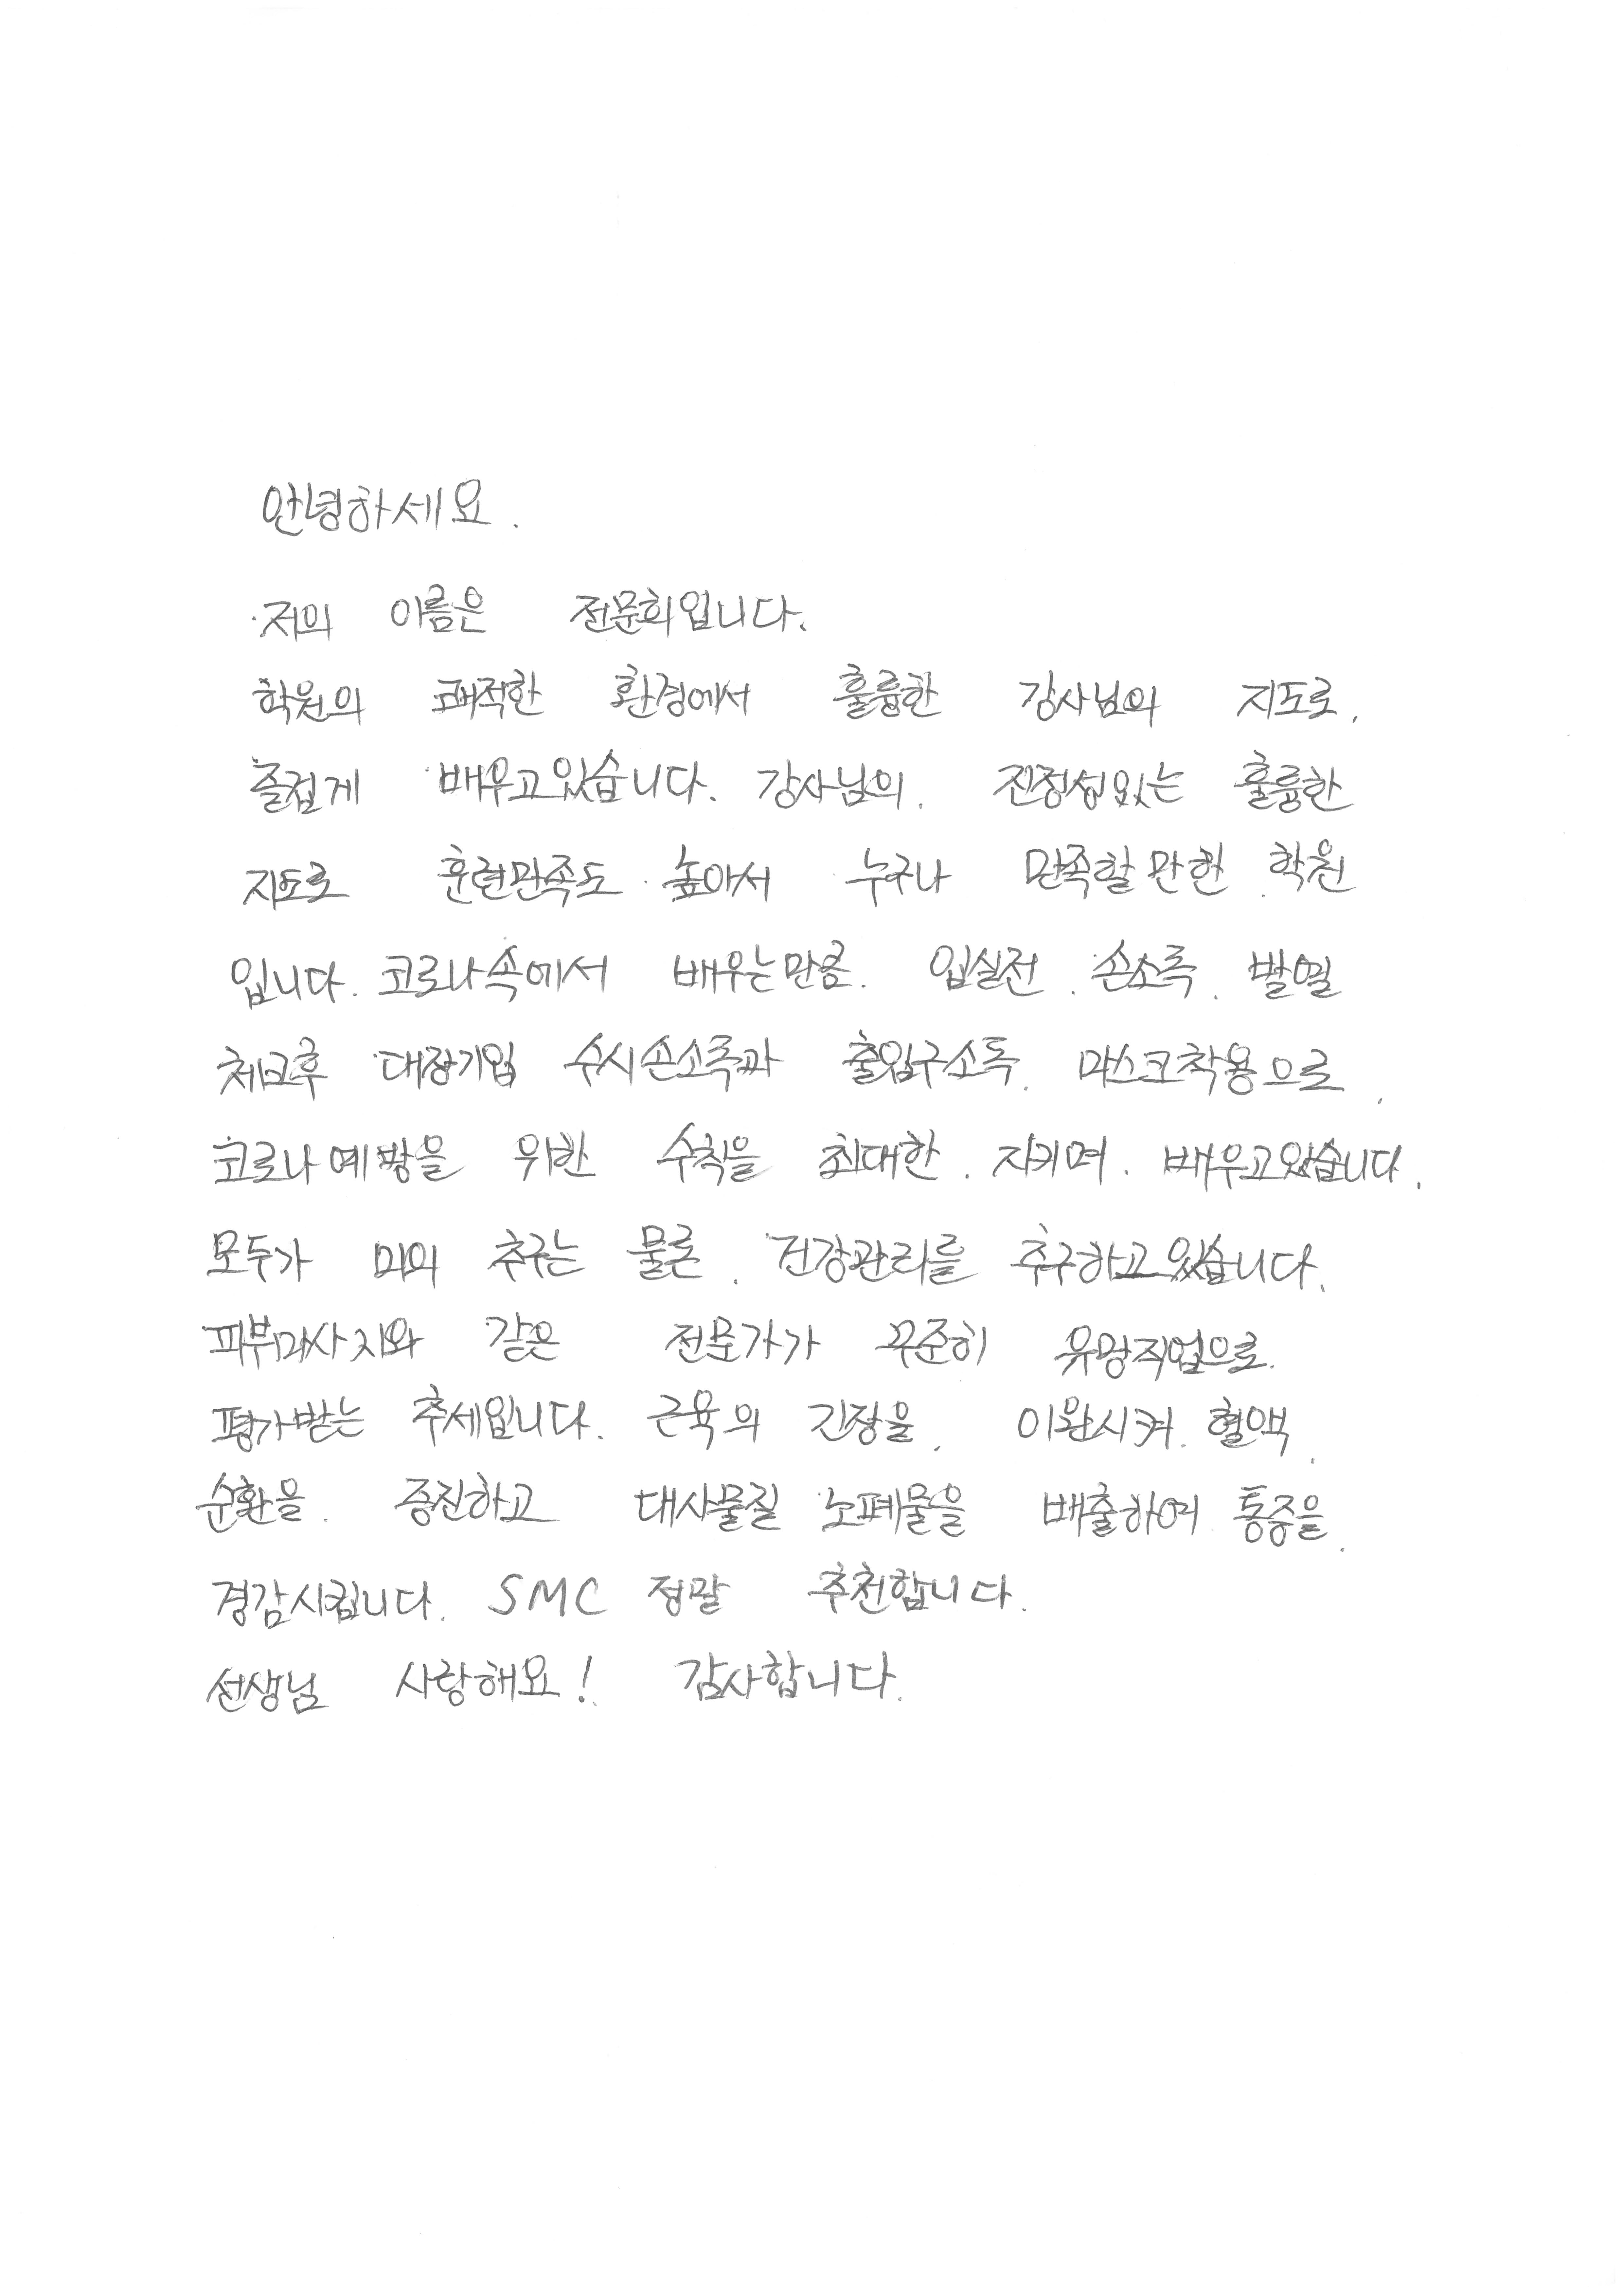 안녕하세요.
저의 이름은 전문희입니다.
학원의 쾌적한 환경에서 훌륭한 강사님의 지도로,
즐겁게 배우고있습니다. 강사님의. 진정성있는 훌륭한
지도로 훈련만족도 높아서 누구나 만족할만한 학원
입니다. 코로나속에서 배우는만큼. 입실전. 손소독. 발열
체크후 대장기입 수시손소독과 출입구소독. 마스크착용으로,
코로나예방을 위한 수칙을 최대한. 지키며. 배우고있습니다.
모두가 미의 추구는 물론. 건강관리를 추구하고있습니다.
피부마사지와 같은 전문가가 꾸준히 유망직업으로.
평가받는 추세입니다. 근육의 긴장을, 이완시켜. 혈액.
순환을. 증진하고 대사물질 노폐물을 배출하여 통증을.
경감시킵니다. SMC 정말 추천합니다.
선생님 사랑해요! 감사합니다.